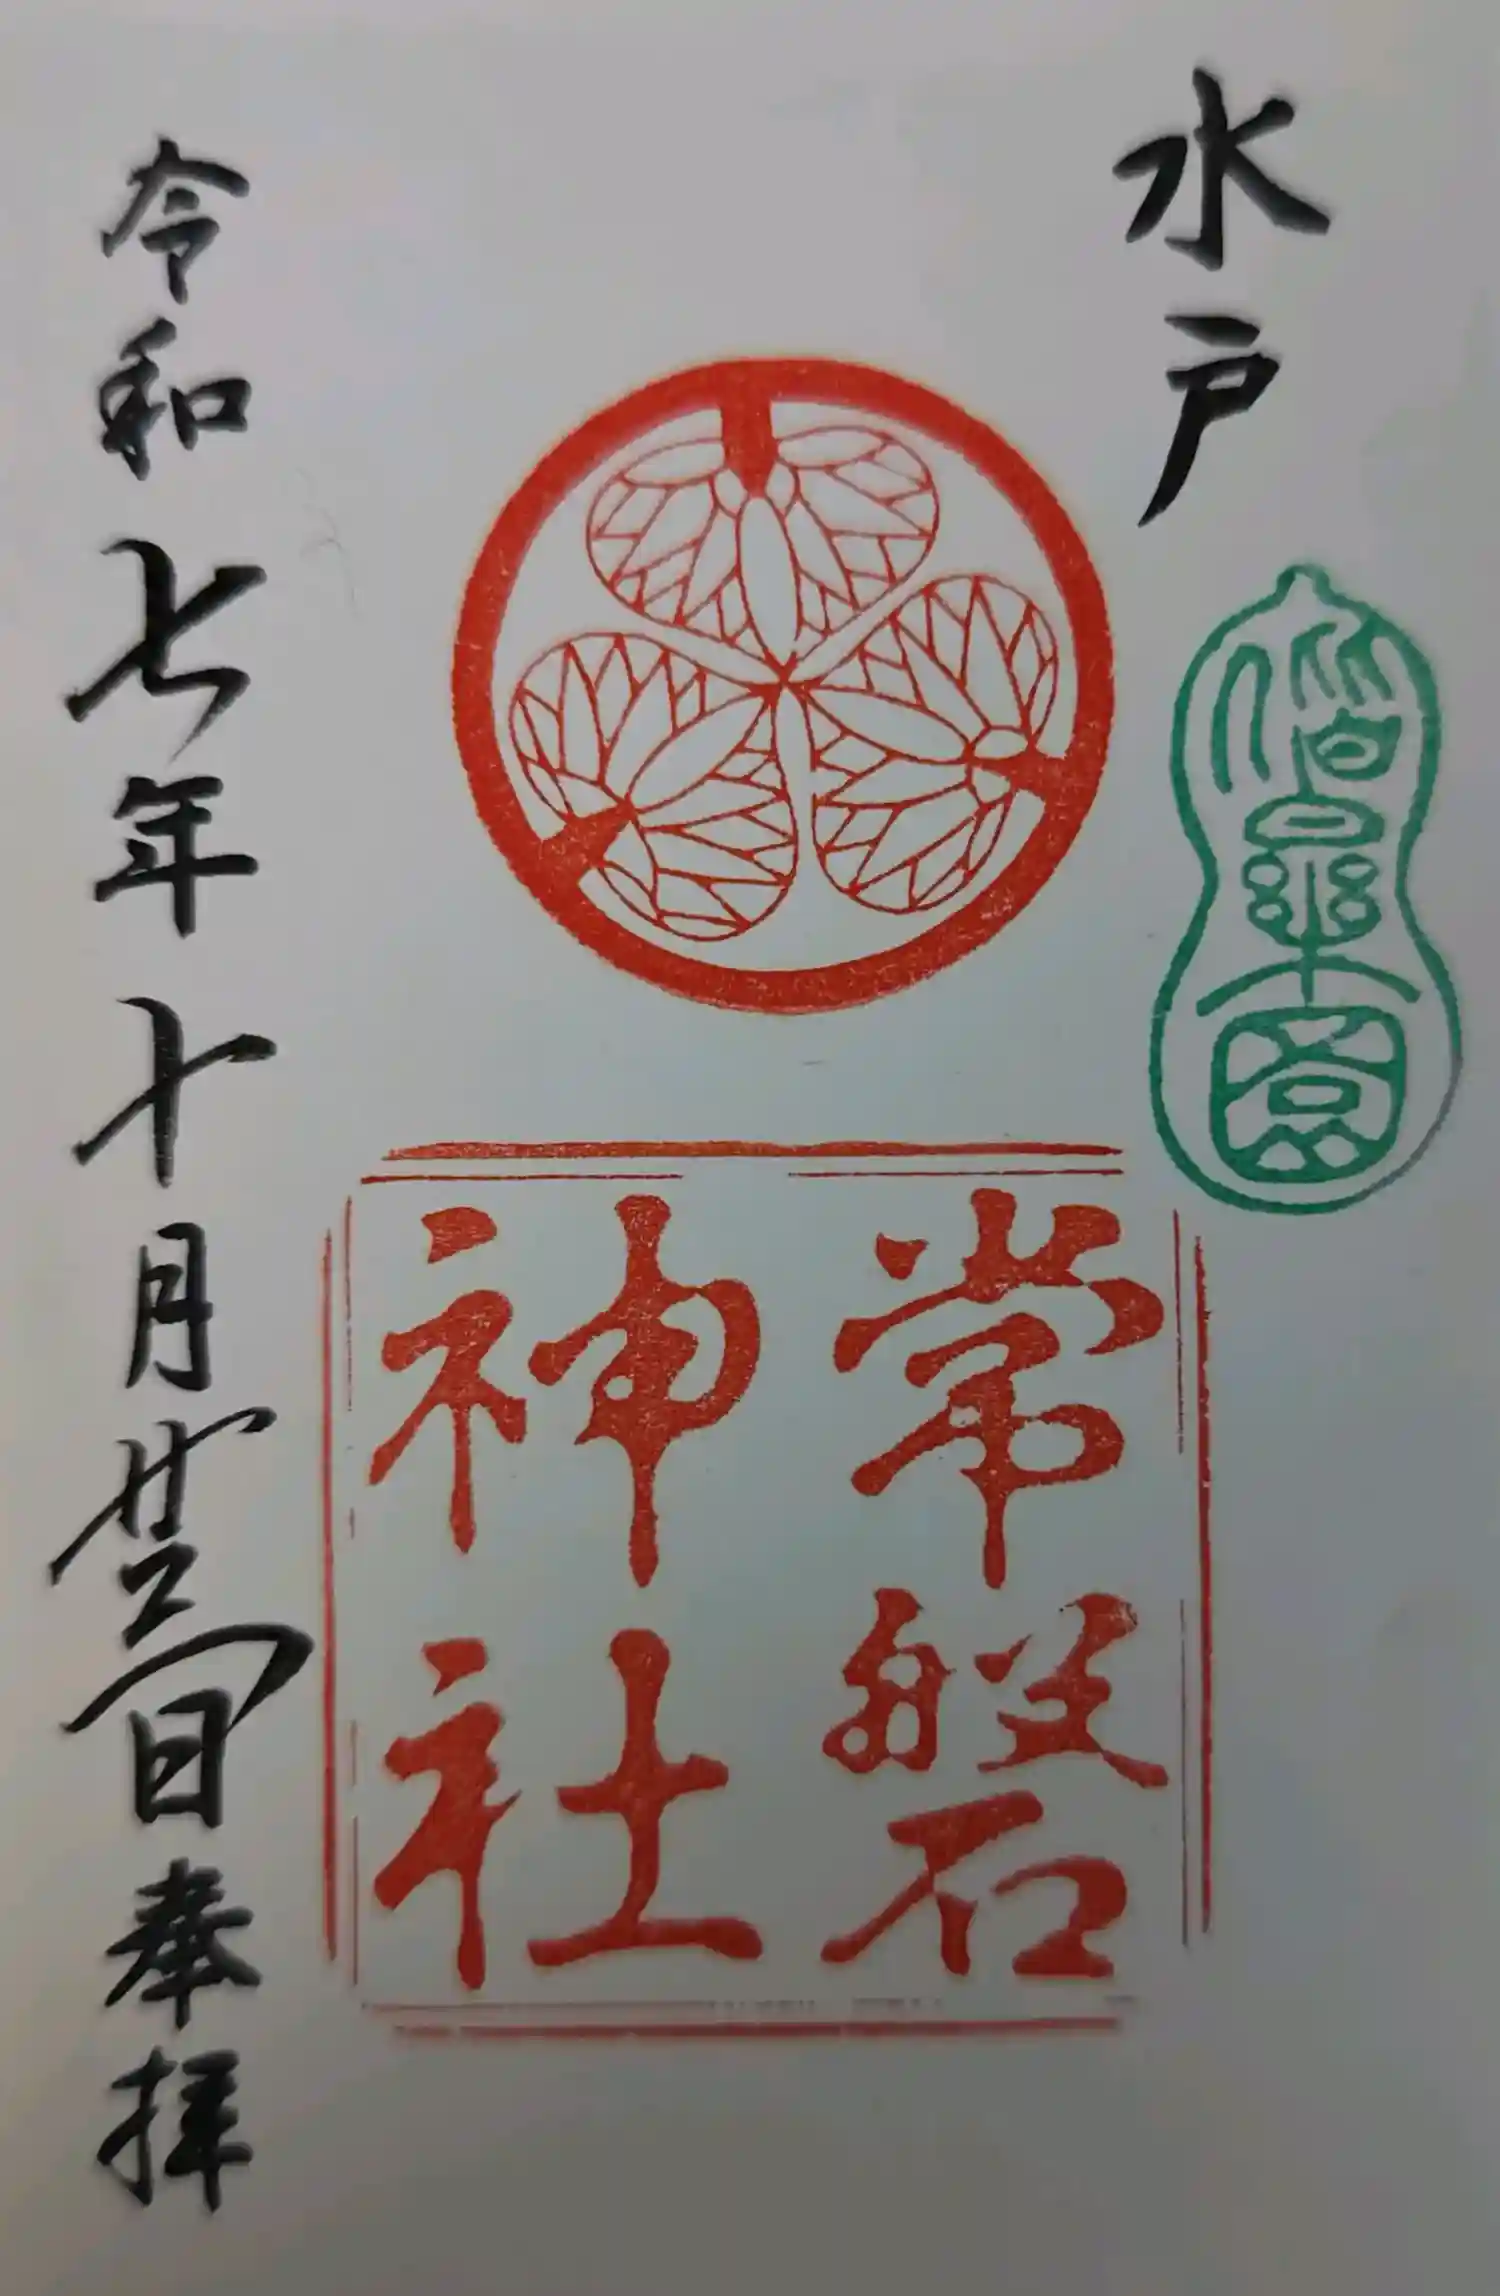 水戸
偕樂園
常磐
神社
令和七年十月廿三日奉拝